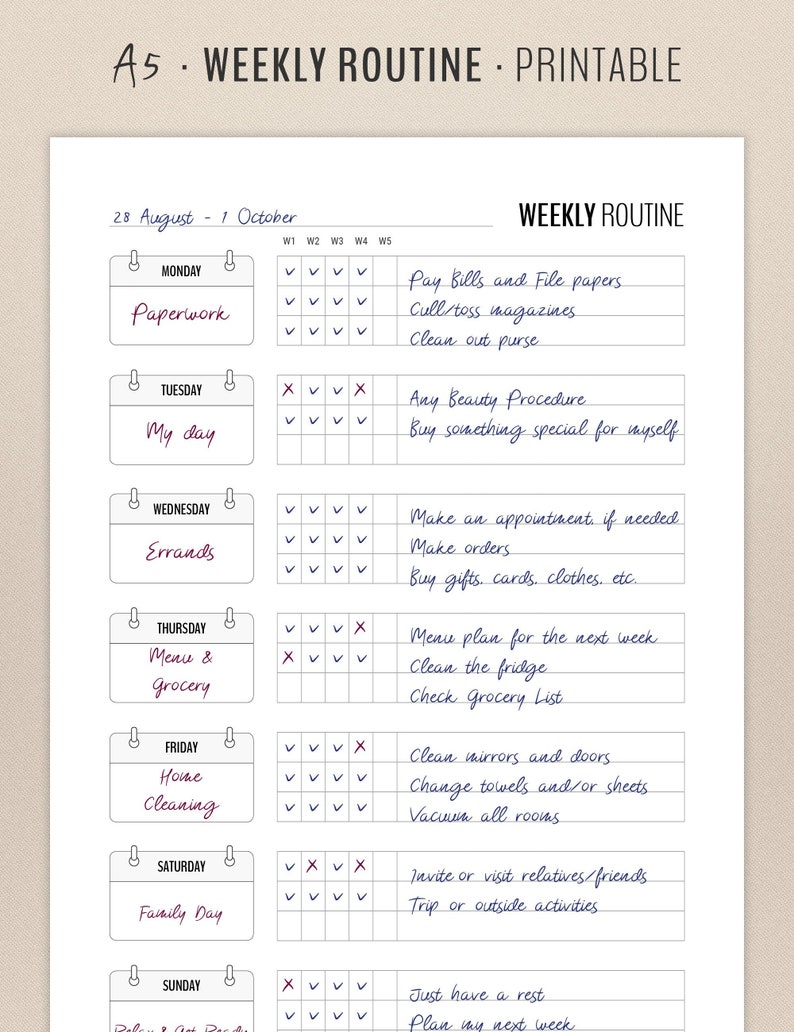 A5 · WEEKLY ROUTINE · PRINTABLE
28 August - 1 October
WEEKLY ROUTINE
W1 W2 W3 W4 W5
MONDAY
Paperwork
Pay Bills and File papers
Cull/toss magazines
Clean out purse
TUESDAY
My day
Any Beauty Procedure
Buy something special for myself
WEDNESDAY
Errands
Make an appointment, if needed
Make orders
Buy gifts, cards, clothes, etc.
THURSDAY
Menu &
Grocery
Menu plan for the next week
Clean the fridge
Check Grocery List
FRIDAY
Home
Cleaning
Clean mirrors and doors
Change towels and/or sheets
Vacuum all rooms
SATURDAY
Family Day
Invite or visit relatives/friends
Trip or outside activities
SUNDAY
Relax & Get Ready
Just have a rest
Plan my next week